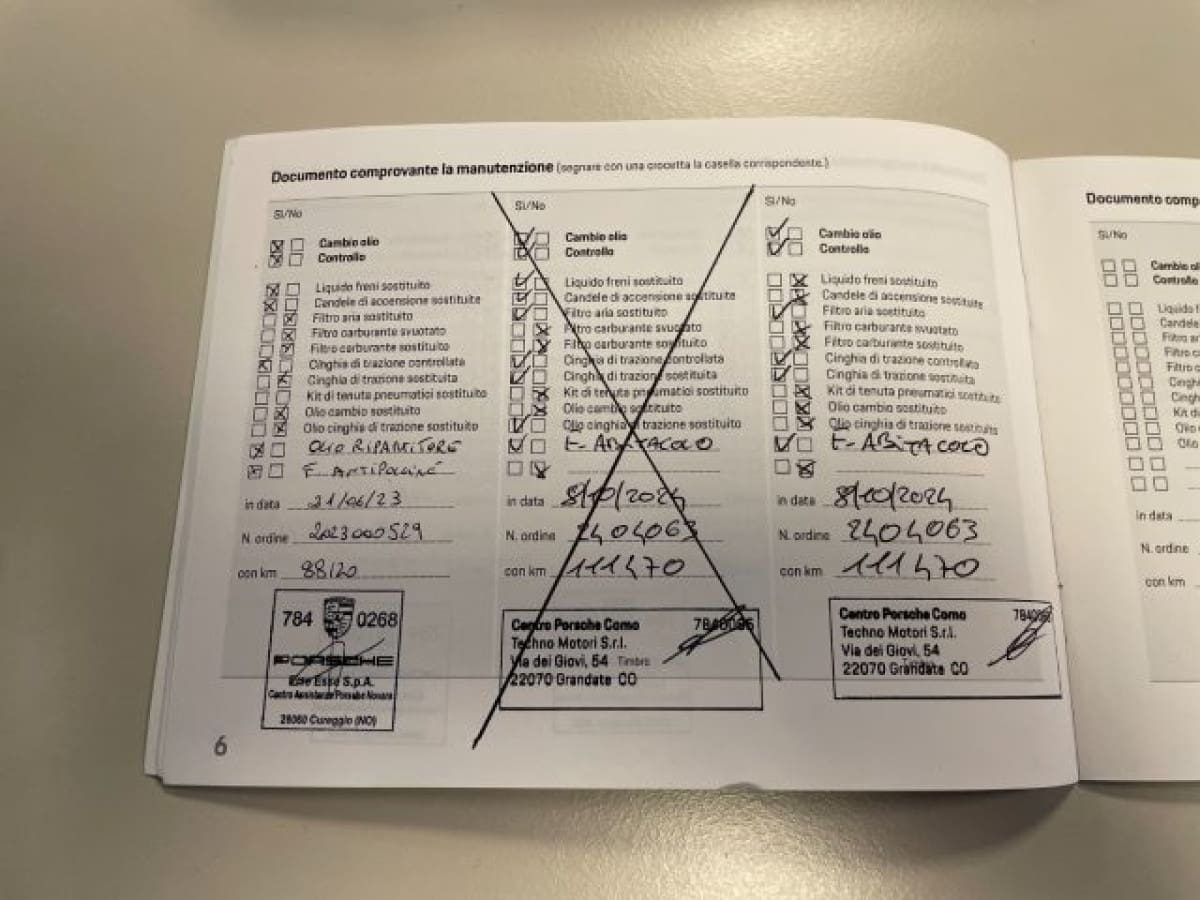 Documento comprovante la manutenzione (segnare con una crocetta la casella corrispondente.)
Si/No
Cambio olio
Controllo
Liquido freni sostituito
Candele di accensione sostituite
Filtro aria sostituito
Filtro carburante svuotato
Filtro carburante sostituito
Cinghia di trazione controllata
Cinghia di trazione sostituita
Kit di tenuta pneumatici sostituito
Olio cambio sostituito
Olio cinghia di trazione sostituito
OLIO RIPARTITORE
F. ANTIPOLLINE
in data 21/06/23
N. ordine 2023000529
con km 88120
784 0268
PORSCHE
Esse S.p.A.
Centro Assistenza Porsche Novara
28060 Cureggio (NO)
6
Si/No
Cambio olio
Controllo
Liquido freni sostituito
Candele di accensione sostituite
Filtro aria sostituito
Filtro carburante svuotato
Filtro carburante sostituito
Cinghia di trazione controllata
Cinghia di trazione sostituita
Kit di tenuta pneumatici sostituito
Olio cambio sostituito
Olio cinghia di trazione sostituito
F- ABITACOLO
in data 8/10/2024
N. ordine 2404063
con km 111470
Centro Porsche Como
Techno Motori S.r.l.
Via dei Giovi, 54 Timbro
22070 Grandate CO
Si/No
Cambio olio
Controllo
Liquido freni sostituito
Candele di accensione sostituite
Filtro aria sostituito
Filtro carburante svuotato
Filtro carburante sostituito
Cinghia di trazione controllata
Cinghia di trazione sostituita
Kit di tenuta pneumatici sostituito
Olio cambio sostituito
Olio cinghia di trazione sostituito
F- ABITACOLO
in data 8/10/2024
N. ordine 2404063
con km 111470
Centro Porsche Como
Techno Motori S.r.l.
Via dei Giovi, 54
22070 Grandate CO
Documento comp
Si/No
Cambio oli
Controllo
Liquido
Candele
Filtro ar
Filtro ca
Filtro c
Cinghi
Cingh
Kit di
Olio
Olio
in data
N. ordine
con km